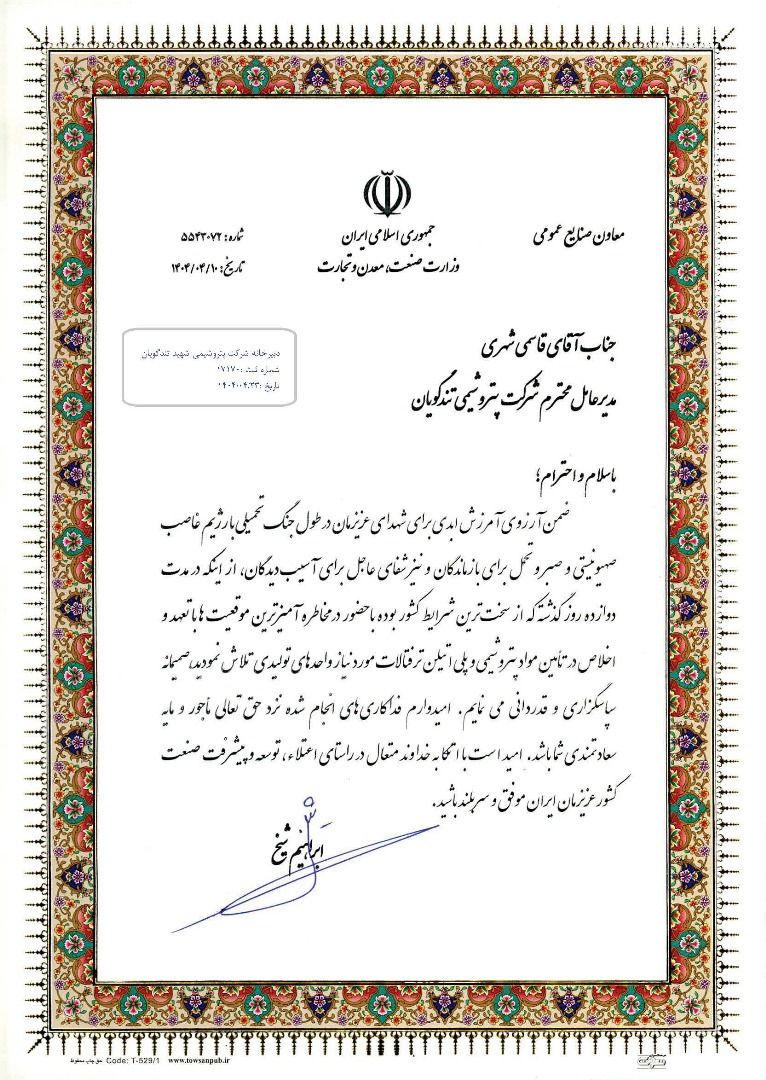 جمهوری اسلامی ایران
وزارت صنعت، معدن و تجارت
معاون صنایع عمومی
شماره: ۵۵۴۳۰۷۲
تاریخ: ۱۴۰۴/۰۴/۱۰
دبیرخانه شرکت پتروشیمی شهید تندگویان
شماره ثبت: ۷۱۷۰
تاریخ: ۱۴۰۴.۰۴.۲۳
جناب آقای قاسمی شهری
مدیرعامل محترم شرکت پتروشیمی تندگویان
باسلام و احترام؛
ضمن آرزوی آمرزش ابدی برای شهدای عزیزمان در طول جنگ تحمیلی با رژیم غاصب
صهیونیستی و صبر و تحمل برای بازماندگان و نیز شفای عاجل برای آسیب‌دیدگان، از اینکه در مدت
دوازده روز گذشته که از سخت‌ترین شرایط کشور بوده با حضور در مخاطره آمیزترین موقعیت ها با تعهد و
اخلاص در تأمین مواد پتروشیمی و پلی اتیلن ترفتالات مورد نیاز واحدهای تولیدی تلاش نمودید، صمیمانه
سپاسگزاری و قدردانی می نمایم. امیدوارم فداکاری های انجام شده نزد حق تعالی مأجور و مایه
سعادتمندی شما باشد. امید است با اتکا به خداوند متعال در راستای اعتلاء، توسعه و پیشرفت صنعت
کشور عزیزمان ایران موفق و سربلند باشید.
ابراهیم شیخ
حق چاپ محفوظ Code: T-529/1 www.towsanpub.ir